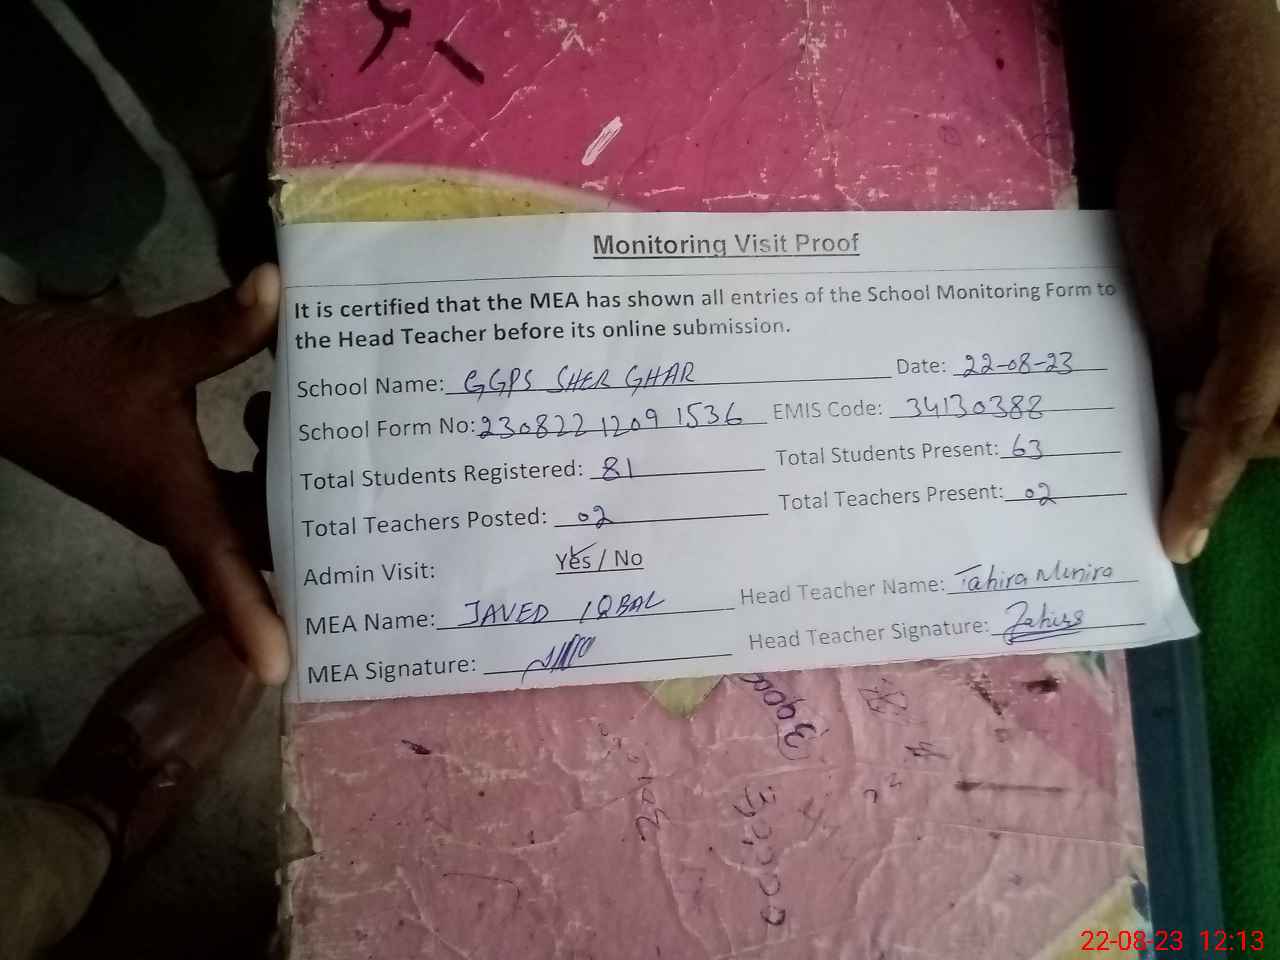 Monitoring Visit Proof
It is certified that the MEA has shown all entries of the School Monitoring Form to
the Head Teacher before its online submission.
School Name: GGPS SHER GHAR Date: 22-08-23
School Form No: 230822 1209 1536 EMIS Code: 34130388
Total Students Registered: 81 Total Students Present: 63
Total Teachers Posted: 02 Total Teachers Present: 02
Admin Visit: Yes / No
MEA Name: JAVED IQBAL Head Teacher Name: Tahira Munira
MEA Signature: Head Teacher Signature: Tahira
22-08-23 12:13